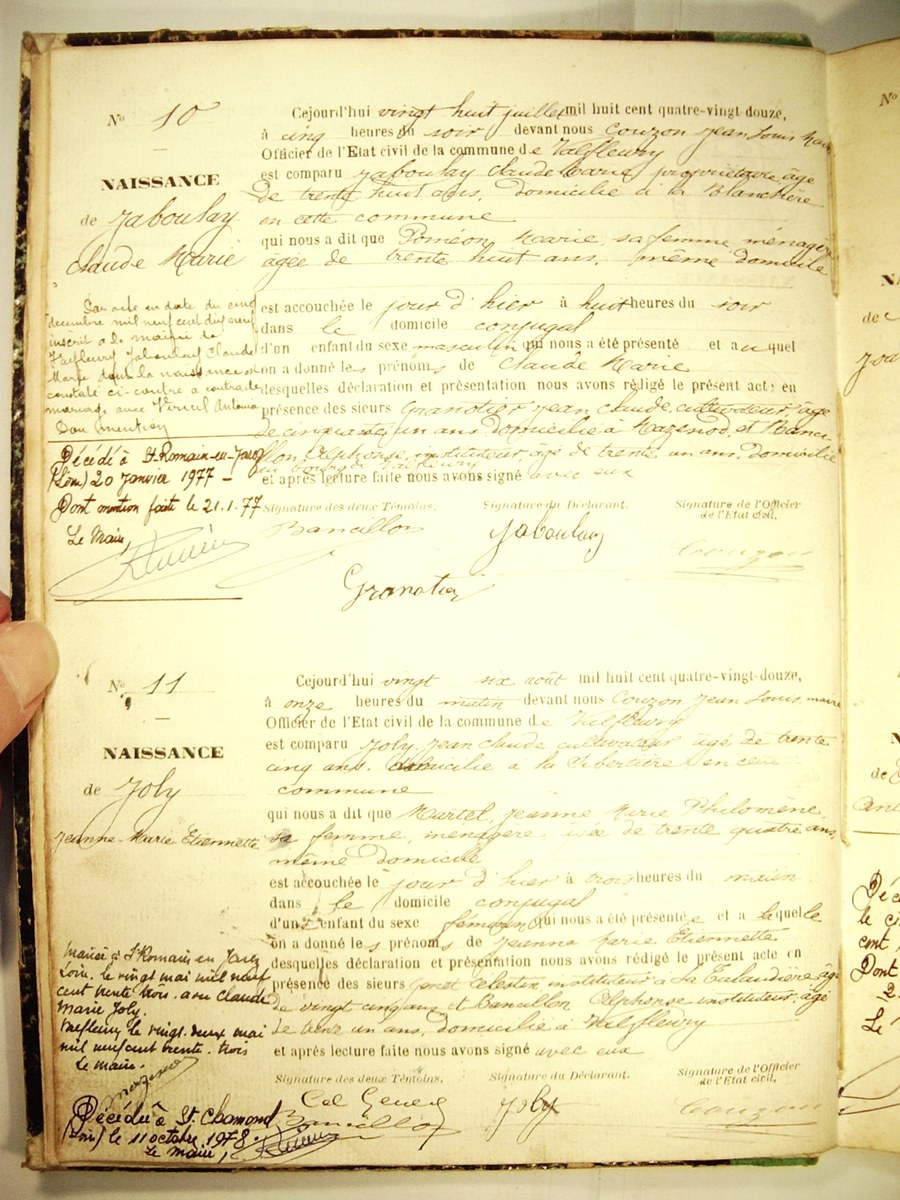 N° 10
NAISSANCE
de Jaboulay
Claude Marie
Par acte en date du cinq
decembre mil neuf cent dix neuf
inscrit a la mairie de
Valfleury Jaboulay Claude
Marie dont la naissance est
constaté ci-contre a contracté
mariage avec Vericel Antonia
Décédé à St Romain-en-Jarez
(Loire) 20 Janvier 1977 -
Dont mention faite le 21.1.77
Le Maire,
Cejourd'hui vingt huit juillet mil huit cent quatre-vingt douze,
à cinq heures du soir devant nous Couzon Jean Louis Maire
Officier de l'Etat civil de la commune de Valfleury
est comparu Jaboulay Claude Marie, propriétaire, âgé
de trente huit ans, domicilié à la Blanchère
en cette commune
qui nous a dit que Poméon Marie sa femme, ménagère
agée de trente huit ans, même domicile
est accouchée le jour d'hier à huit heures du soir
dans le domicile conjugal
d'un enfant du sexe masculin qui nous a été présenté et auquel
on a donné les prénoms de Claude Marie
desquelles déclaration et présentation nous avons rédigé le présent acte en
présence des sieurs Granotier Jean Claude, cultivateur, âgé
de cinquante un ans domicilié à Mazenod, et Banci-
llon Alphonse, instituteur, âgé de trente un ans, domicilié
au bourg de Valfleury
et après lecture faite nous avons signé avec eux
Signature des deux Témoins. Signature du Déclarant. Signature de l'Officier
de l'Etat civil,
Bancillon Jaboulay Couzon
Granotier
N° 11
NAISSANCE
de Joly
Jeanne-Marie Etiennette
Mariée à St Romain en Jarez
Loire, le vingt mai mil neuf
cent trente trois, avec Claude
Marie Joly.
Valfleury le vingt-deux mai
mil neuf cent trente-trois
Le maire.
Décédée à St Chamond
(Loire) le 11 octobre 1978.
Le maire,
Cejourd'hui vingt six août mil huit cent quatre-vingt-douze,
à onze heures du matin devant nous Couzon Jean Louis, maire
Officier de l'Etat civil de la commune de Valfleury
est comparu Joly Jean Claude cultivateur âgé de trente
cinq ans, domicilié à la Libertière en cette
commune
qui nous a dit que Martel, Jeanne Marie Philomène,
sa femme, ménagère âgée de trente quatre ans,
même domicile
est accouchée le jour d'hier à trois heures du matin
dans le domicile conjugal
d'un enfant du sexe féminin qui nous a été présentée et à laquelle
on a donné les prénoms de Jeanne Marie Etiennette
desquelles déclaration et présentation nous avons rédigé le présent acte en
présence des sieurs Genet Célestin, instituteur à La Talaudière, âgé
de vingt cinq ans et Bancillon Alphonse instituteur, âgé
de trente un ans, domicilié à Valfleury
et après lecture faite nous avons signé avec eux
Signature des deux Témoins. Signature du Déclarant. Signature de l'Officier
de l'Etat civil,
Cel Genet Joly Couzon
Bancillon